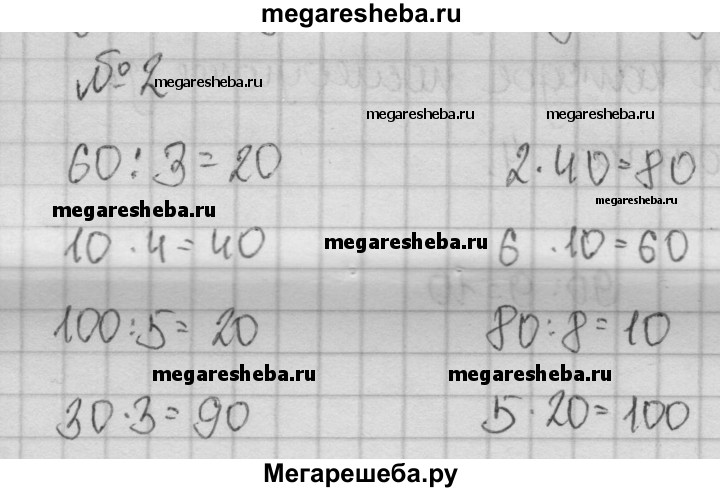 megaresheba.ru
№ 2 megaresheba.ru
megaresheba.ru megaresheba.ru
60 : 3 = 20 2 · 40 = 80
megaresheba.ru megaresheba.ru
10 · 4 = 40 megaresheba.ru 6 · 10 = 60
100 : 5 = 20 80 : 8 = 10
megaresheba.ru megaresheba.ru
30 · 3 = 90 5 · 20 = 100
Мегарешеба.ру